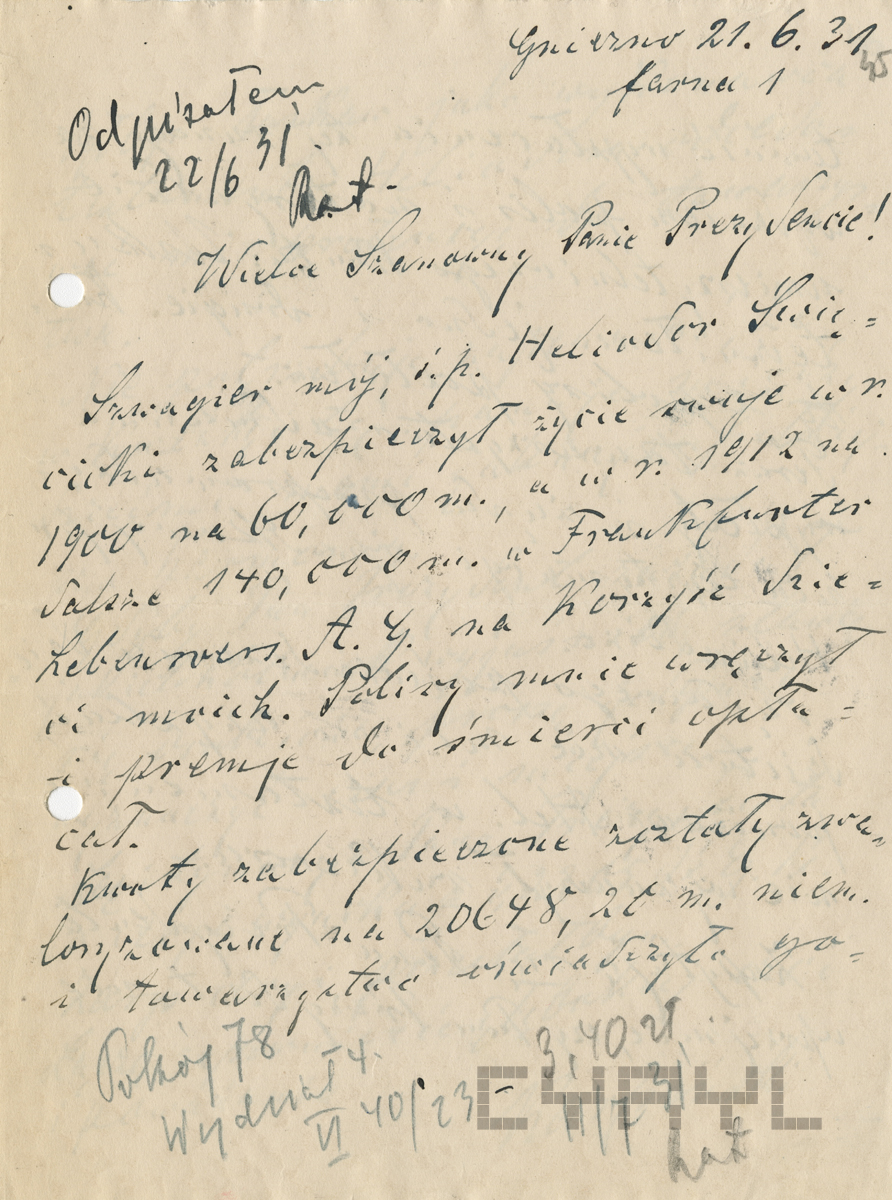 Gniezno 21. 6. 31
45
farna 1
Odpisałem
22/6 31.
Rat.
Wielce Szanowny Panie Prezydencie!
Szwagier mój, ś.p. Heliodor Świę=
cicki zabezpieczył życie swoje w r.
1900 na 60,000 m., a w r. 1912 na
dalsze 140,000 m. w Frankfurter
Lebensvers. A. G. na korzyść dzie=
ci moich. Polisy mnie wręczył
i premje do śmierci opła=
cał.
Kwoty zabezpieczone zostały zwa=
loryzowane na 20648,20 m. niem.
i towarzystwo oświadczyło go=
Pokój 78
Wydział 4.
VI 40/23 - 3,40 zł.
11/7 31
Rat
CYRYL